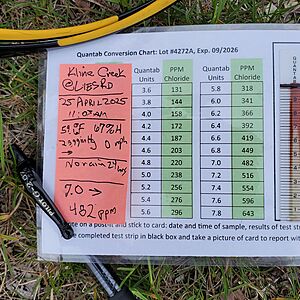 Quantab Conversion Chart: Lot #4272A, Exp. 09/2026
Kline Creek
@LIESRD
25 APRIL 2025
Quantab Units PPM Chloride Quantab Units PPM Chloride
3.6 131 5.8 318
3.8 144 6.0 341
4.0 158 6.2 366
4.2 172 6.4 392
4.4 187 6.6 419
4.6 203 6.8 449
4.8 220 7.0 482
5.0 238 7.2 516
5.2 256 7.4 554
5.4 276 7.6 593
5.6 296 7.8 643
No rain 24 hrs
7.0 →
482 ppm
on a post-it and stick to card: date and time of sample, results of test
completed test strip in black box and take a picture of card to report
QUANTAB